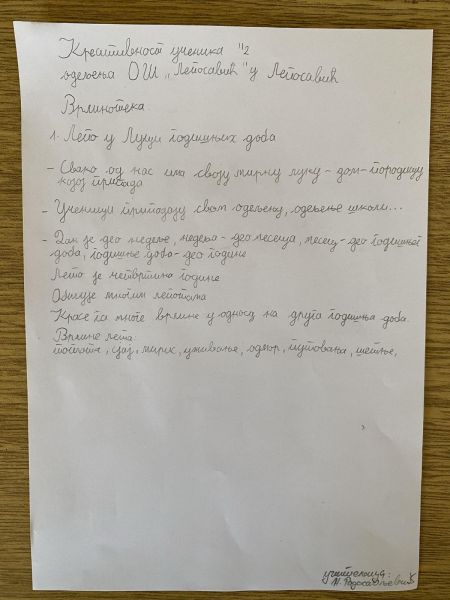 Креативност ученика "2
одељења ОШ „Лепосавић" у Лепосавић
Врлинотека.
1. Лето у Луци годишњих доба
- Свако од нас има своју мирну луку - дом - породицу
којој припада
- Ученици припадају свом одељењу, одељење школи...
- Дан је део недеље, недеља - део месеца, месец - део годишњег
доба, годишње доба - део године
Лето је четвртина године
Обилује многим лепотама
Красе га многе врлине у односу на друга годишња доба.
Врлине лета:
топлота, сјај, мирис, уживање, одмор, путовања, шетње,
учитељица
М. Радосављевић